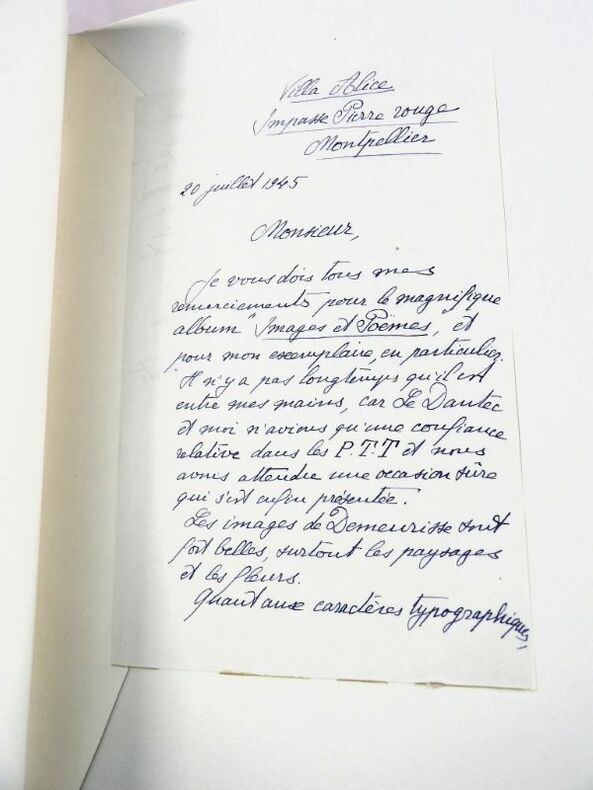 Villa Alice
Impasse Pierre rouge
Montpellier
20 juillet 1945
Monsieur,
Je vous dois tous mes
remerciements pour le magnifique
album "Images et Poëmes", et
pour mon exemplaire, en particulier.
Il n'y a pas longtemps qu'il est
entre mes mains, car Le Dantec
et moi n'avions qu'une confiance
relative dans les P.T.T et nous
avons attendu une occasion sûre
qui s'est enfin présentée.
Les images de Demeurisse sont
fort belles, surtout les paysages
et les fleurs.
Quant aux caractères typographiques,